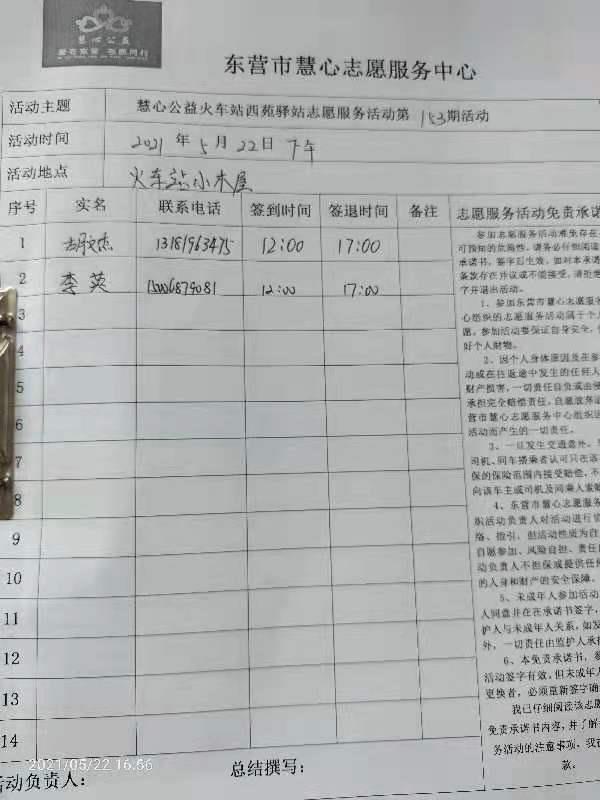 慧心公益
爱在东营 我愿同行
东营市慧心志愿服务中心
活动主题 慧心公益火车站西苑驿站志愿服务活动第153期活动
活动时间 2021年5月22日下午
活动地点 火车站小木屋
序号 实名 联系电话 签到时间 签退时间 备注 志愿服务活动免责承诺
1 杰 13181963475 12:00 17:00
2 李英 12:00 17:00
3
4
5
6
7
8
9
10
11
12
13
14
参加志愿服务活动难免存在
可预知的危险性。请务必仔细阅读
承诺书。签字后生效。如对本承诺
条款存在异议或不能接受,请拒绝
字并退出活动。
1、参加东营市慧心志愿服务
心组织的志愿服务活动属于个人
愿。参加活动要保证自身安全,
好个人财物。
2、因个人身体原因及在参
动或在往返途中发生的任何人
财产损害,一切责任自负或由侵
承担完全赔偿责任。自愿放弃
营市慧心志愿服务中心组织
活动而产生的一切责任。
3、一旦发生交通意外,
司机、同车搭乘者认可只在该
保的保险范围内接受赔偿,不
向该车主或司机及同乘人索赔
4、东营市慧心志愿服务
织活动负责人对活动进行
络、指引,但活动性质为自
自愿参加、风险自担、责任
动负责人不担保或提供任何
的人身和财产的安全保障。
5、未成年人参加活动
人同意并在在承诺书签字,
护人与未成年人关系,如发
外,一切责任由监护人承担
6、本免责承诺书,参
活动签字有效,但未成年人
更换者,必须重新签字确
我已仔细阅读该志愿
免责承诺书内容,并了解
务活动的注意事项,我
款。
活动负责人: 总结撰写:
2021/05/22 16:56